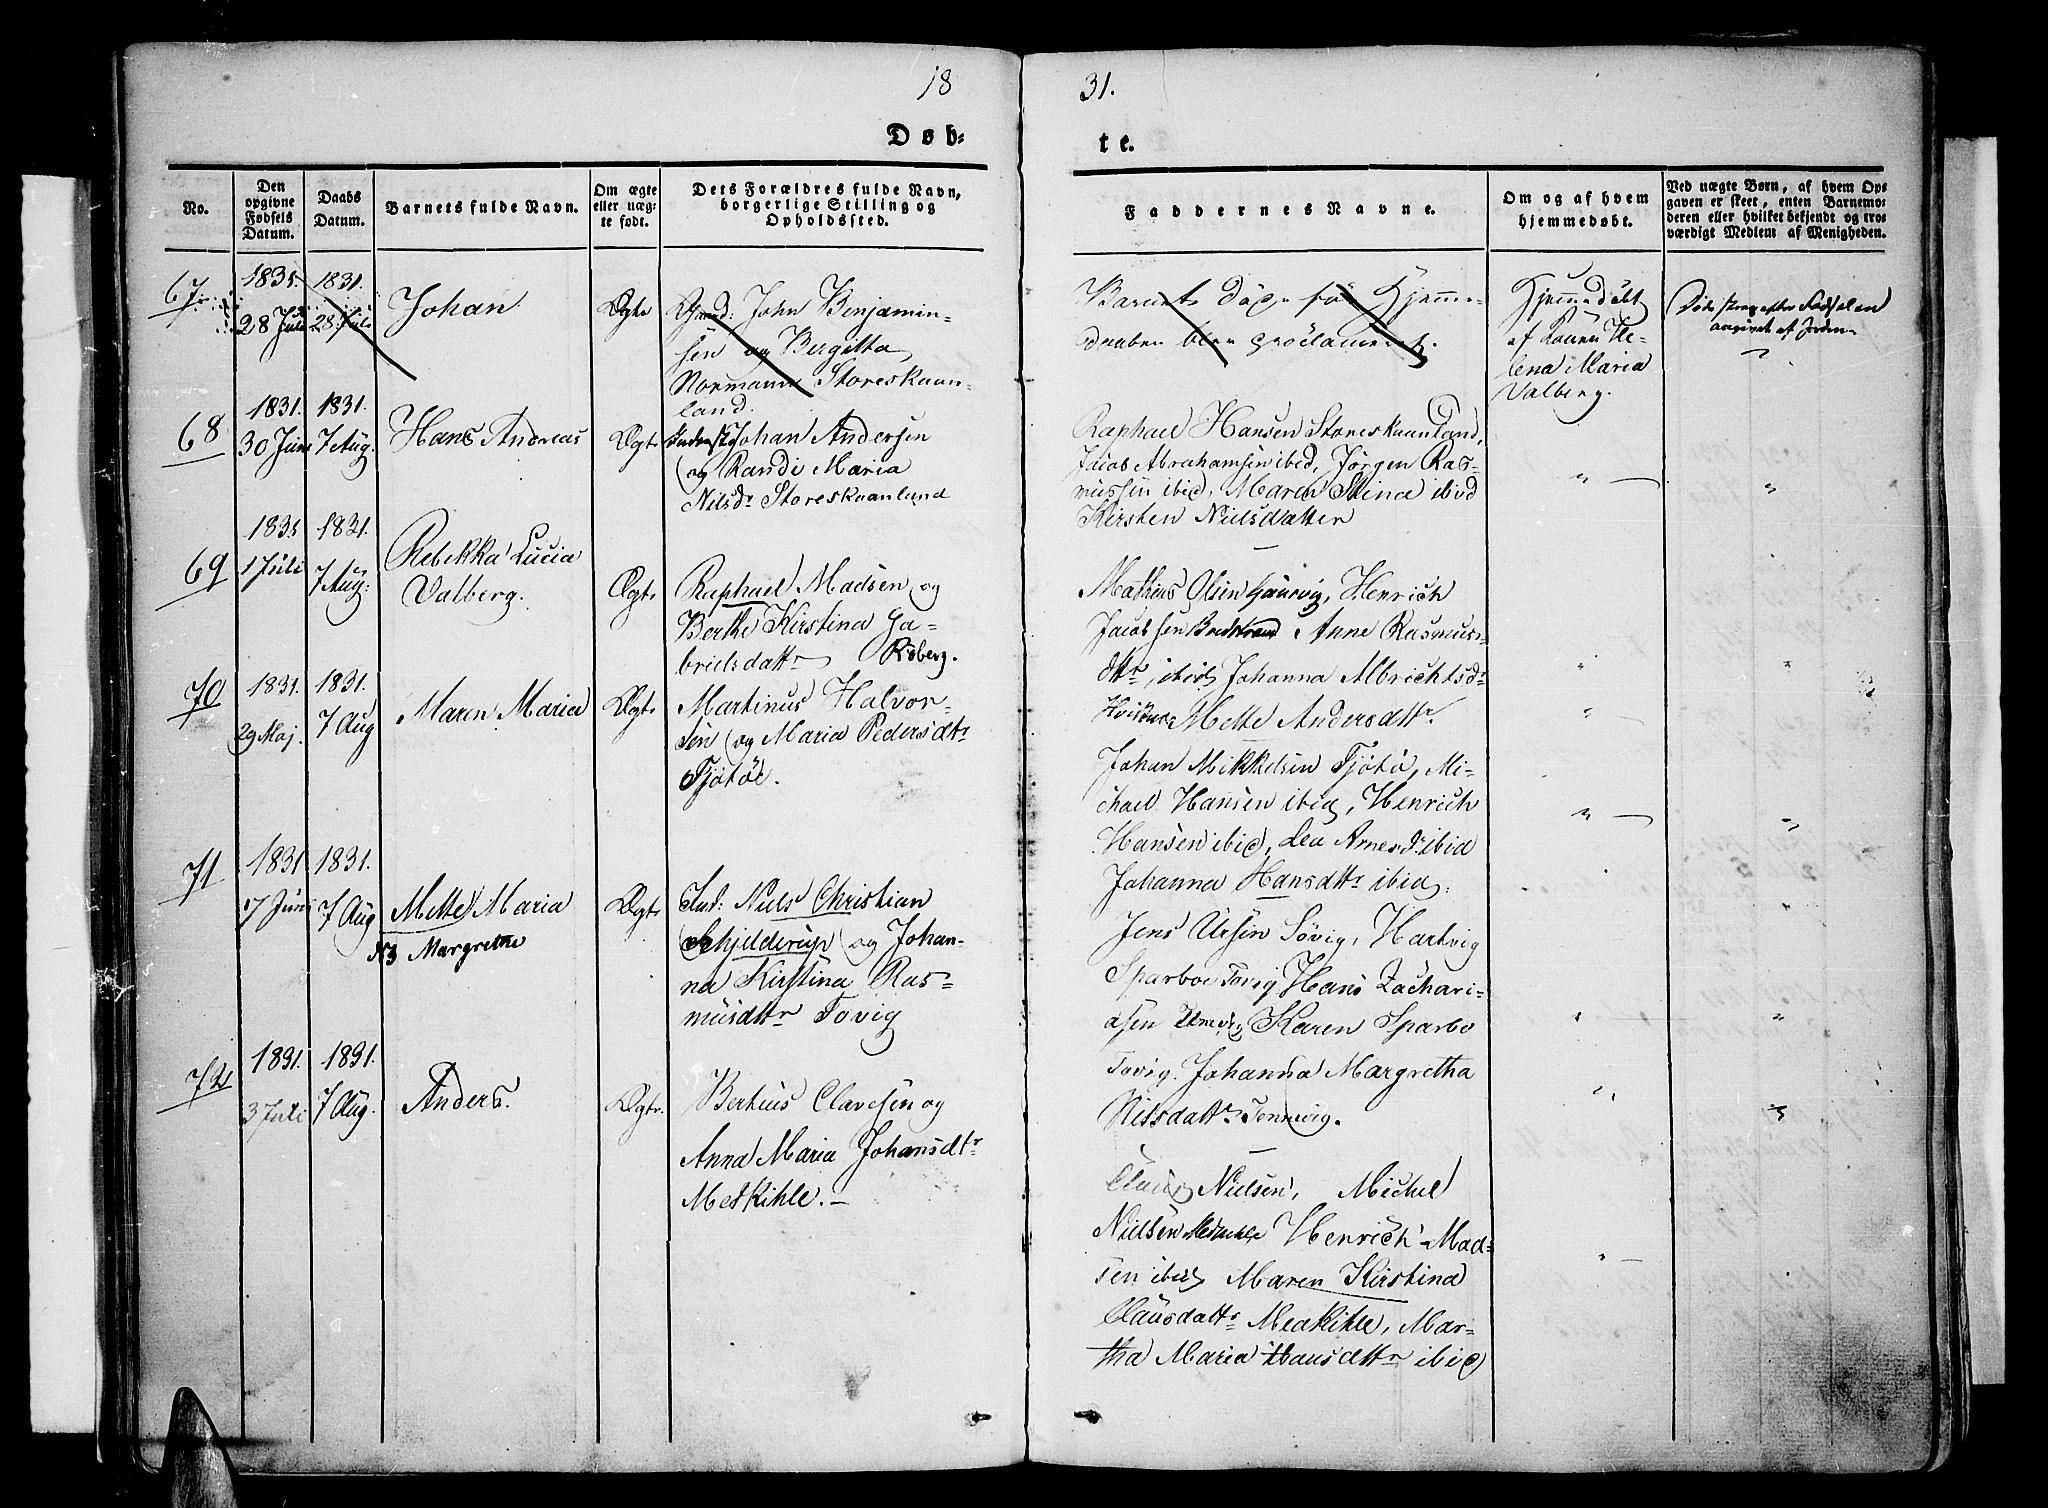 18
31.
Døb-
te.
No.
Den
opgivne
Fødsels
Datum.
Daabs
Datum.
Barnets fulde Navn.
Om ægte
eller uæg-
te født.
Dets Forældres fulde Navn,
borgerlige Stilling og
Opholdssted.
Faddernes Navne.
Om og af hvem
hjemmedøbt.
Ved uægte Børn, af hvem Op-
gaven er skeet, enten Barnemo-
deren eller hvilket bekjendt og tro-
værdigt Medlem af Menigheden.
67
1831.
28 Juli
1831.
28 Juli
Johan
Ægte
John Benjamin-
sen og Bergitta
Normann Storeskaan-
land.
Barnets før Hjemme-
daaben blev proclameret.
Hjemmedöbt
af Konen He-
lena Maria
Valberg.
68
1831.
30 Juni
1831.
7 Aug.
Hans Andreas
Ægte
Johan Andersen
og Randi Maria
Nilsdr Storeskaanland
Raphael Hansen Storeskaanland,
Jacob Abrahamsen ibid, Jörgen Ras-
mussen ibid, Maren Stina ibid
Kirsten Nielsdatter
69
1831
1 Juli
1831.
7 Aug:
Rebekka Lucia
Valberg.
Ægte
Raphael Madsen og
Berthe Kirstina Ga-
brielsdattr Röberg.
Mathias Olsen Gausvig, Henrich
Jacobsen Bredstrand Anne Rasmus-
dttr ibid, Johanna Albrichtsdr
Mette Andersdttr.
70
1831.
29 Maj.
1831.
7 Aug
Maren Maria
Ægte
Martinus Halvor-
sen og Maria Pedersdtr
Tjötöe.
Johan Mikkelsen Tjötö, Mi-
chael Hansen ibid, Henrich
Hansen ibid, Lea Arnesdr ibid
Johanna Hansdttr ibid.
71
1831
7 Juni
1831.
7 Aug
Mette Maria
N3 Margrethe
Ægte
Ind: Niels Christian
Schjelderup og Johan-
na Kirstina Ras-
musdttr Tovig
Jens Ursin Sövig, Hartvig
Sparboe Tovig Hans Zachari-
asen Karen Sparbo
Tovig. Johanna Margretha
Nilsdattr Tennevig.
72
1831.
3 Juli
1831.
7 Aug.
Anders.
Ægte.
Bertius Clavesen og
Anna Maria Johansdtr
Medkihle.
Claus Nielsen, Michel
Nielsen Medkihle Henrich Mad-
sen ibid Maren Kirstina
Clausdattr Medkihle, Mar-
tha Maria Hansdttr ibid